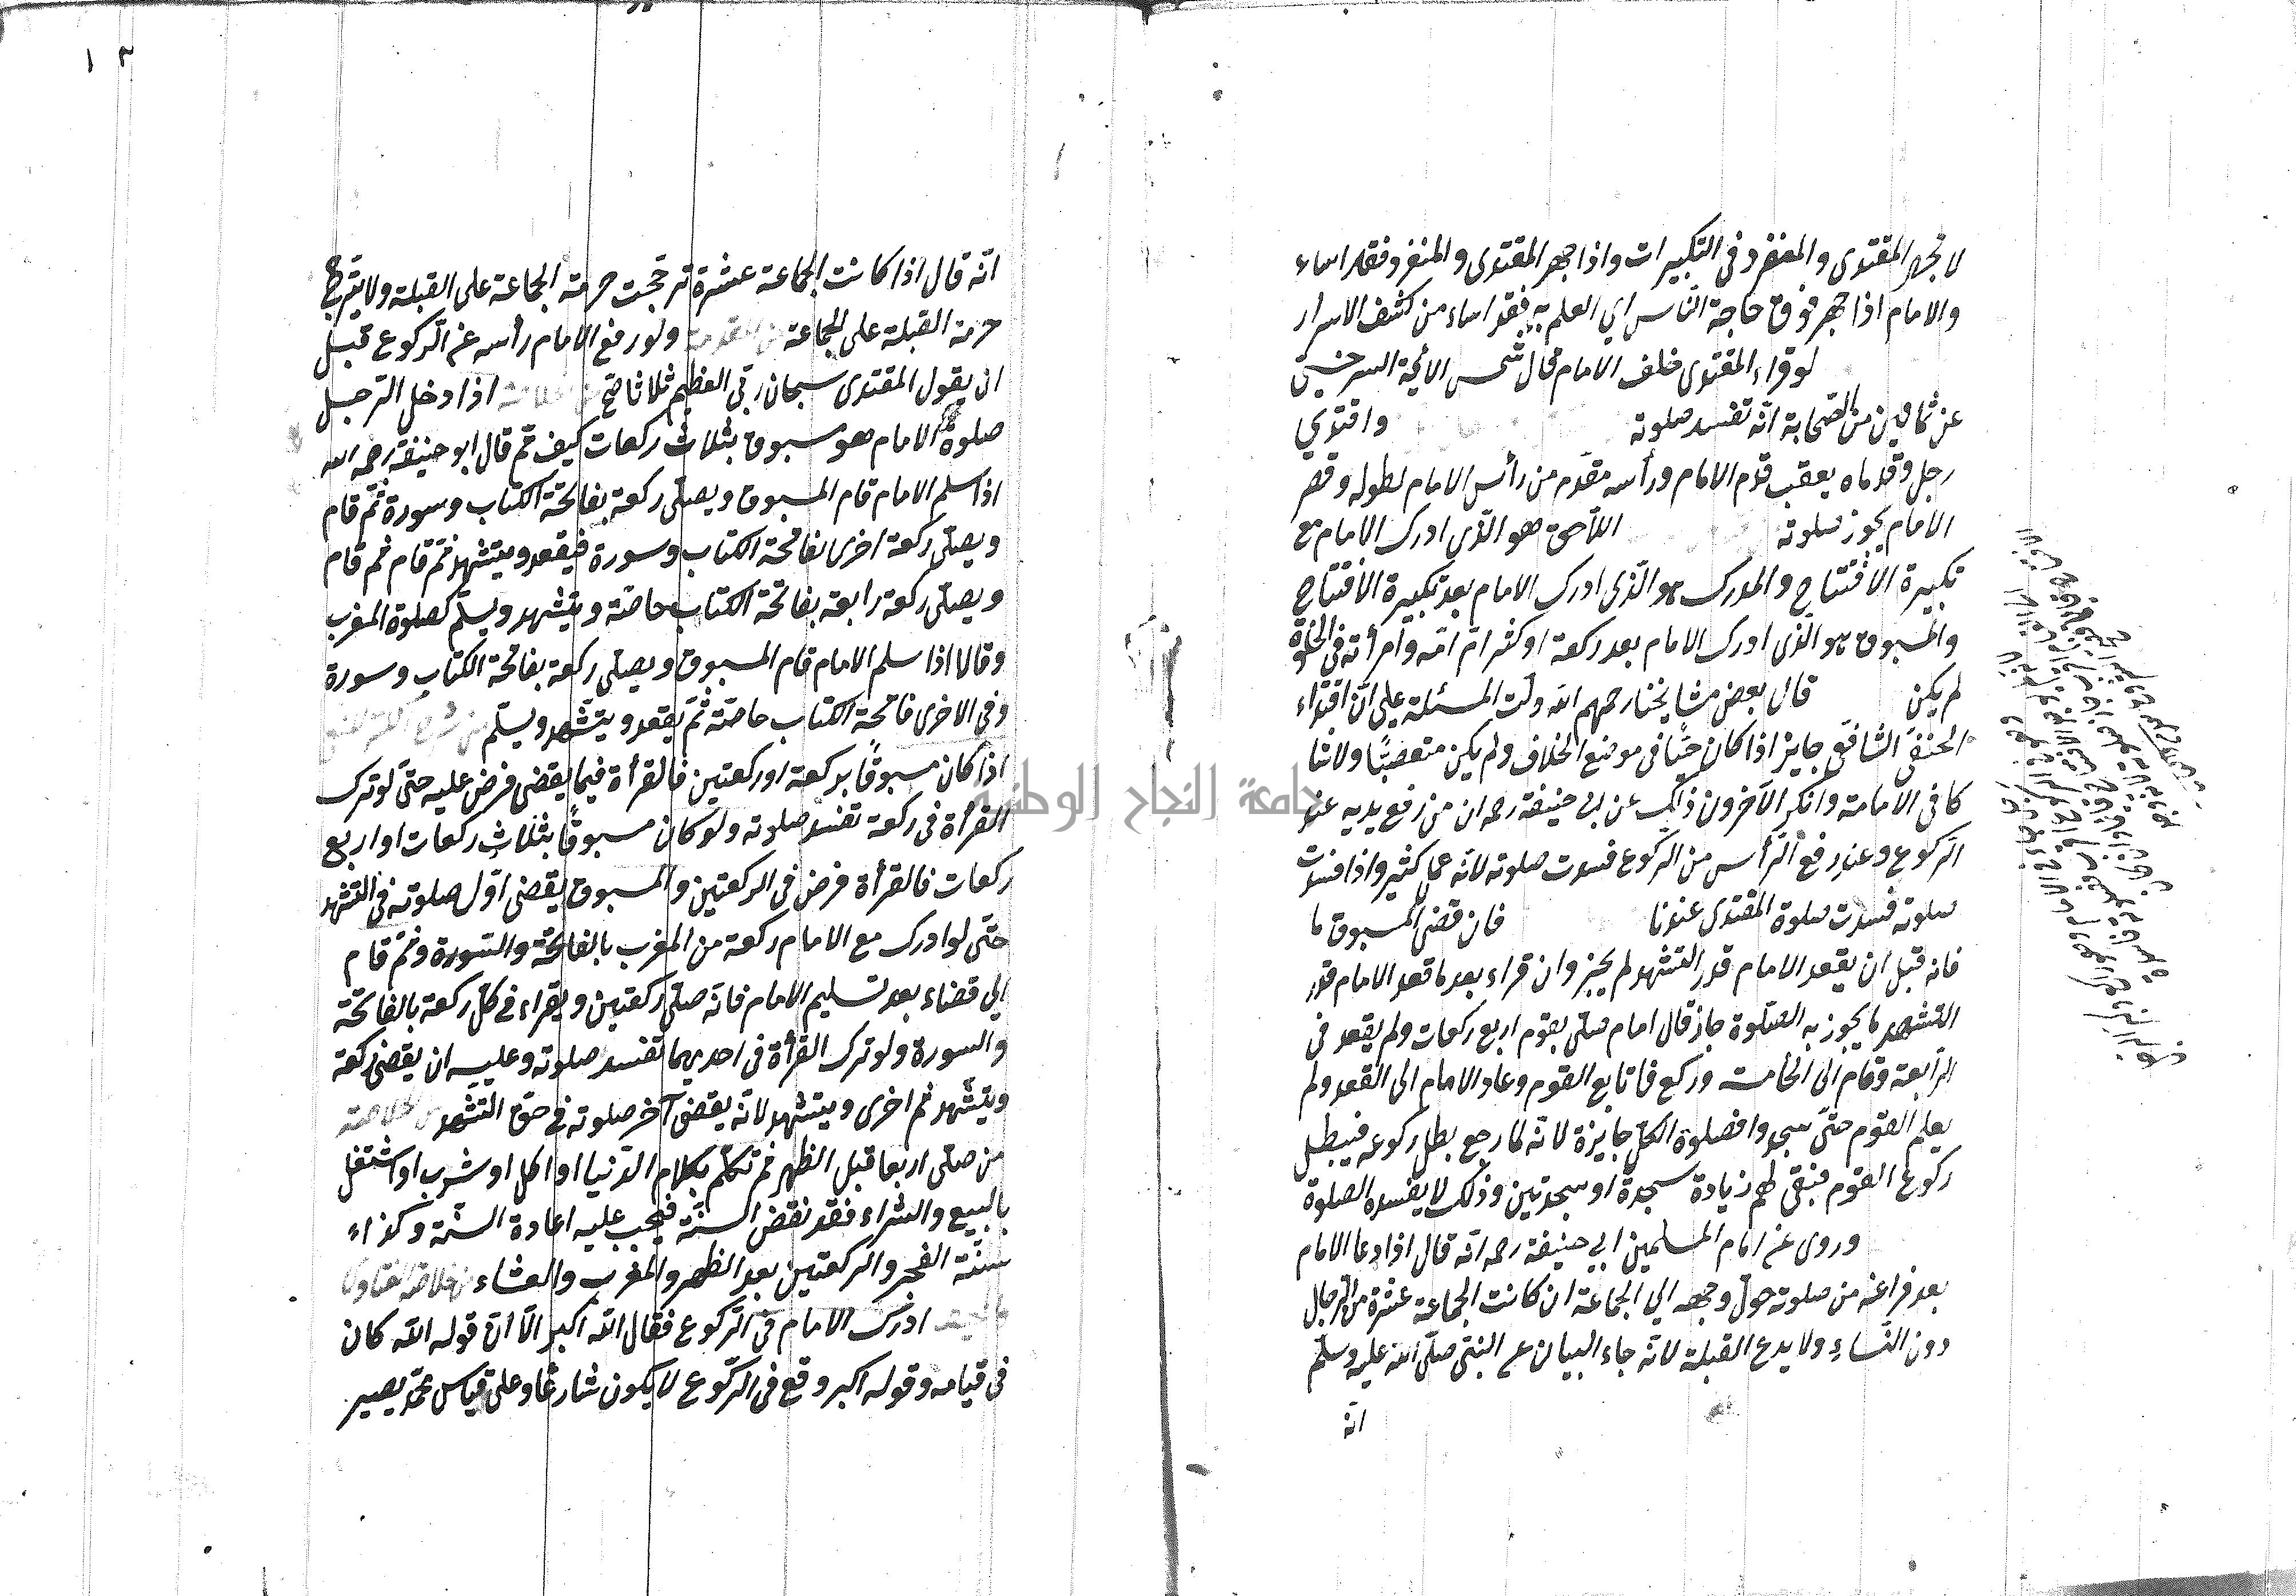 لا يجهر المقتدى والمنفرد في التكبيرات واذا جهر المقتدى والمنفرد فقد اساء
والامام اذا جهر فوق حاجة النّاس اي العلم به فقد اساء من كشف الاسرار
لو قراء المقتدى خلف الامام قال شمس الأئمة السرخسي
عن ثمانين من الصّحابة انّه تفسد صلوته واقتدي
رجل وقدماه يعقب قدم الامام ورأسه مقدّم من رأس الامام لطوله وقصر
الامام يجوز صلوته اللاّحق هو الّذي ادرك الامام مع
تكبيرة الافتتاح والمدرك هو الّذى ادرك الامام بعد تكبيرة الافتتاح
والمسبوق هو الّذى ادرك الامام بعد ركعة او كثر امّ امّه وامرأته في الخلوة
لم يكن قال بعض مشايخنا رحمهم الله دلّت المسئلة على انّ اقتداء
الحنفىّ الشّافعّي جايز اذا كان في موضع الخلاف ولم يكن متعصبًا ولا شا
كا في الأمامة وانكر الآخرون ذلك عن ابى حنيفة رحمه ان من رفع يديه عند
الرّكوع وعند رفع الرّأس من الرّكوع فسدت صلوته لانّه عمل كثير واذا فسدت
صلوته فسدت صلوة المقتدى عندنا فان قضى المسبوق ما
فاته قبل ان يقعد الامام قدر التشهد لم يجز وان قراء بعد ما قعد الامام قدر
التشهد ما يجوز به الصّلوة جاز قال امام صلّى بقوم اربع ركعات ولم يقعد فى
الرّابعة وقام الى الخامسة وركع فاتابع القوم وعاد الامام الى القعد ولم
يعلم القوم حتىّ سجدوا فصلوة الكلّ جايزة لانّه لما رجع بطل ركوعه فيبطل
ركوع القوم فبقى لهم زيادة سجدة او سجدتين وذلك لا يفسد الصلوة
وروى عن امام المسلمين ابي حنيفة رحمه انّه قال اذا دعا الامام
بعد فراغه من صلوته حوّل وجهه الي الجماعة ان كانت الجماعة عشرة من الرّجال
دون النّساءِ ولا يدع القبلة لانّه جاء البيان عن النّبىّ صلّى الله عليه وسلّم
انّه
١٣
انّه قال اذا كانت الجماعة عشرة ترجّحت حرمة الجماعة على القبلة ولا يترجّح
حرمة القبلة على الجماعة من المقدمة ولو رفع الامام رأسه عن الرّكوع قبل
ان يقول المقتدى سبحان ربّى العظيم ثلاثا اذا دخل الرّجل
صلوة الامام هو مسبوق بثلاث ركعات كيف تمّ قال ابو حنيفة رحمه الله
اذا سلم الامام قام المسبوق ويصلّى ركعة بفاتحة الكتاب وسورة ثمّ قام
ويصلّى ركعة اخرى بفاتحة الكتاب وسورة فيقعد ويتشهد ثمّ قام ثم قام
ويصلّى ركعة رابعة بفاتحة الكتاب خاصّة ويتشهد ويسلّم كصلوة المغرب
وقالا اذا سلم الامام قام المسبوق ويصلّى ركعة بفاتحة الكتاب وسورة
وفى الاخرى فاتحة الكتاب خاصّة ثمّ يقعد ويتشّهد ويسلّم من شرح
اذا كان مسبوقًا بركعة او ركعتين فالقرأة فيما يقضى فرض عليه حتىّ لو ترك
القرأة فى ركعة تفسد صلوته ولو كان مسبوقًا بثلاث ركعات او اربع
ركعات فالقرأة فرض فى الركعتين والمسبوق يقضى اوّل صلوته في التشهد
حتى لو ادرك مع الامام ركعة من المغرب بالفاتحة والسّورة وثمّ قام
الي قضاء بعد تسليم الامام فانّه صلّى ركعتين ويقراء في كلّ ركعة بالفاتحة
والسورة ولو ترك القرأة فى احديهما تفسد صلوته وعليه ان يقضى ركعة
ويتشّهد ثم اخرى ويتشهد لانّه يقضى آخر صلوته في حقّ التشّهد من الخلاصة
من صلّى اربعا قبل الظهر ثم تكلّم بكلام الدّنيا او اكل او شرب او اشتغل
بالبيع والشراء فقد نقض السنّة فيجب عليه اعادة السنّة وكذاء
سنّة الفجر والركعتين بعد الظهر والمغرب والعشاء من خلاصة الفتاوى
ادرك الامام فى الرّكوع فقال اللّه اكبر الاّ انّ قوله اللّه كان
فى قيامه وقوله اكبر وقع فى الرّكوع لا يكون شارعًا وعلى قياس محمّد يصير
جامعة النجاح الوطنية